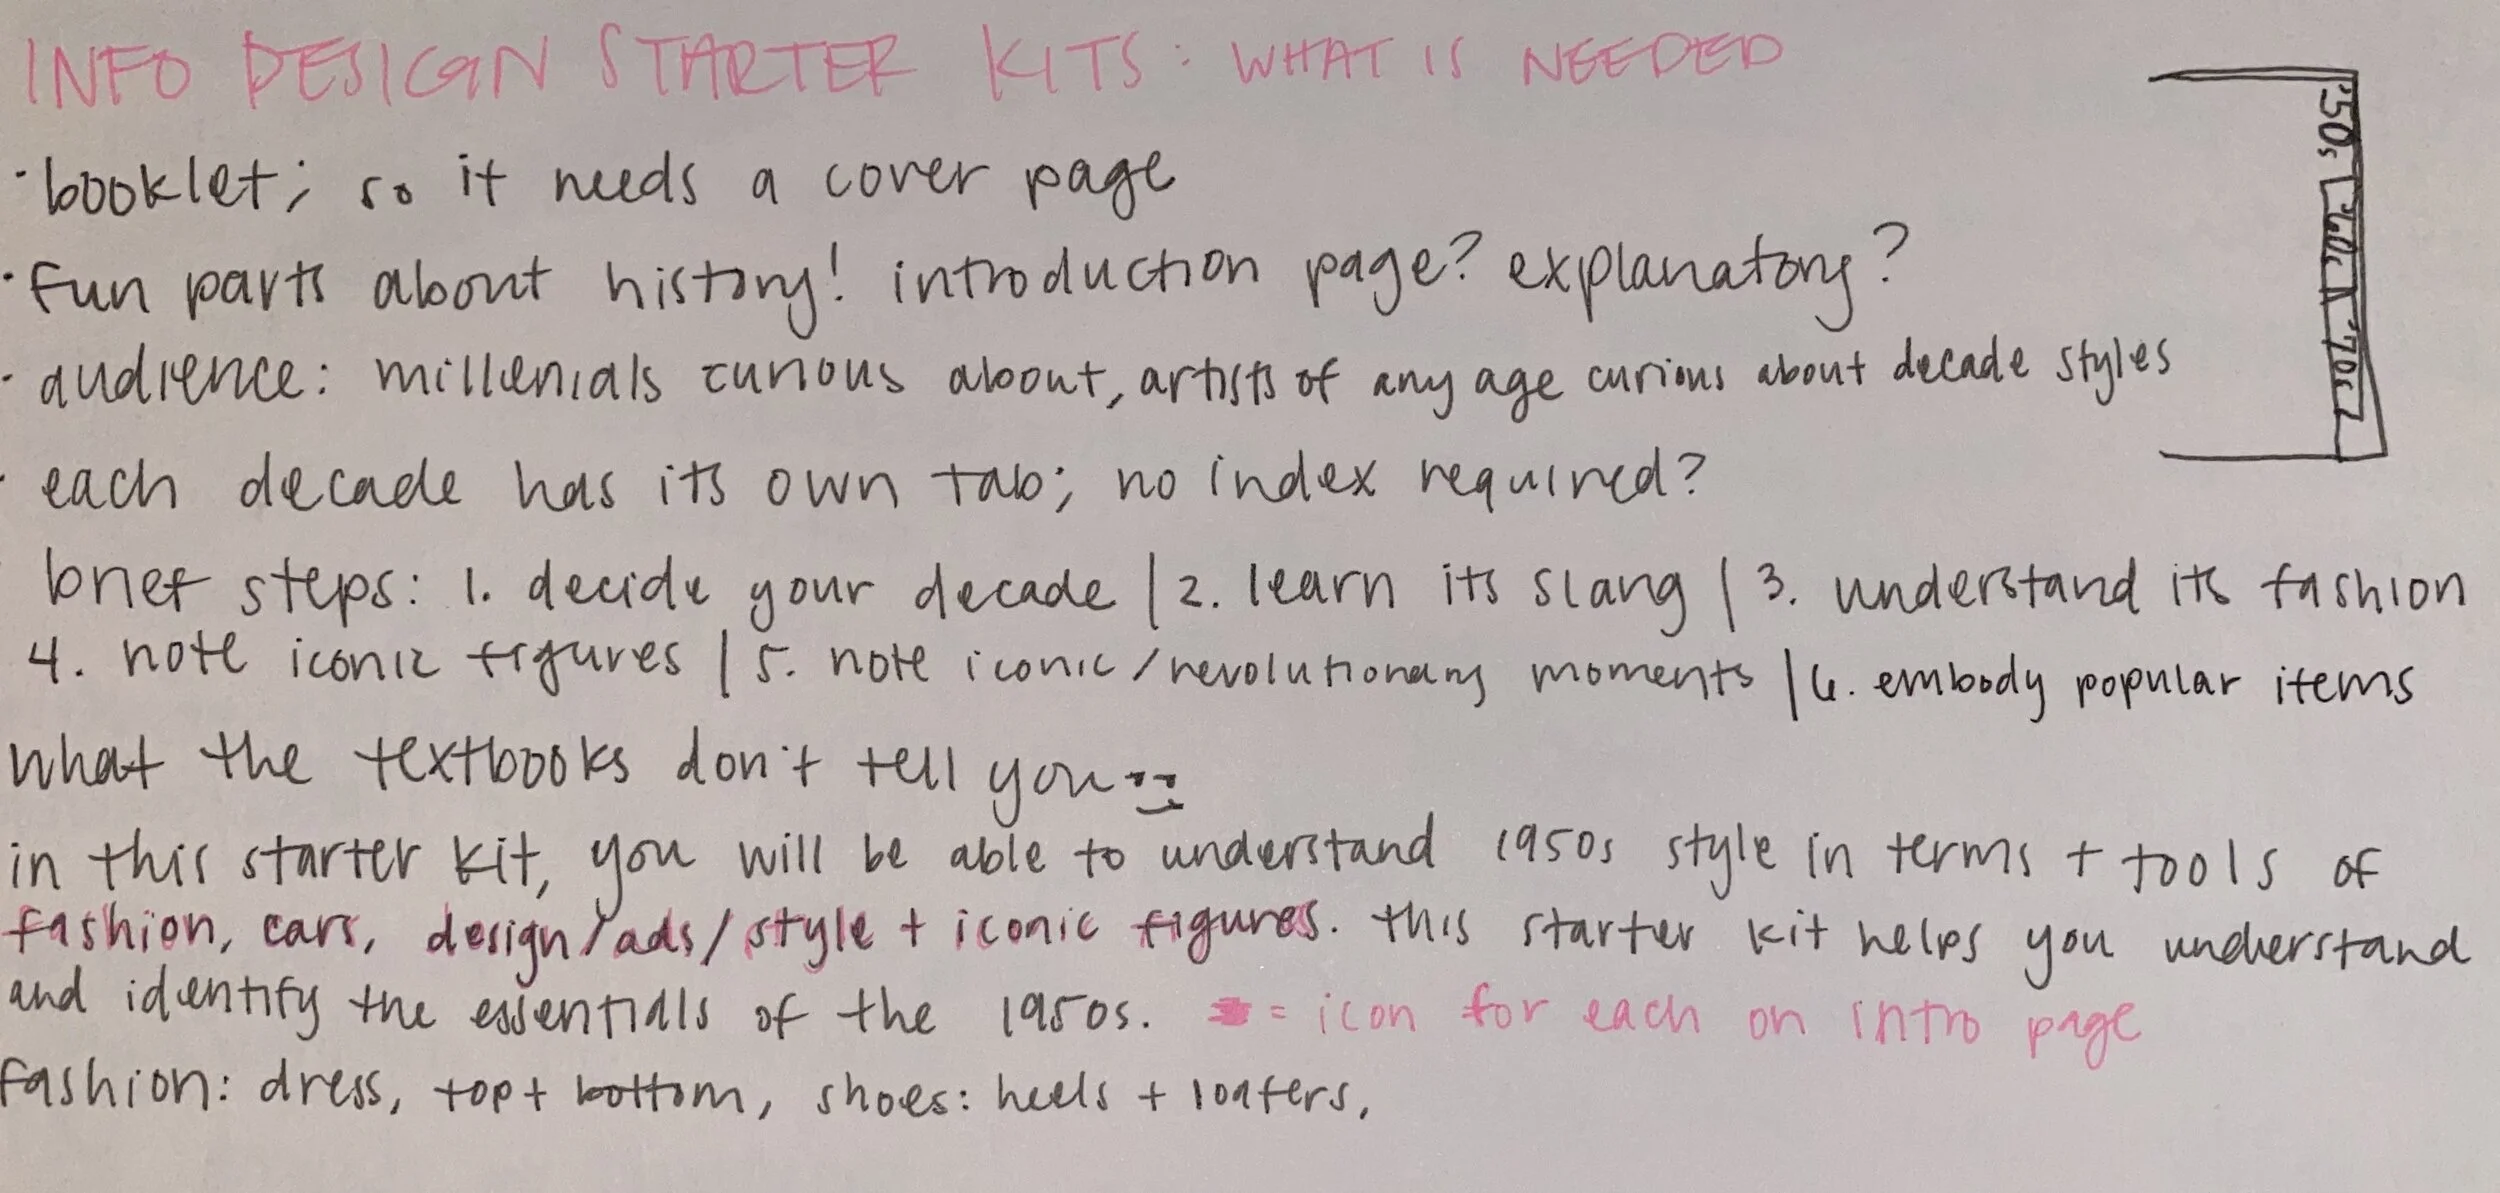 INFO DESIGN STARTER KITS: WHAT IS NEEDED
· booklet; so it needs a cover page
· fun parts about history! introduction page? explanatory?
· audience: millenials curious about, artists of any age curious about decade styles
· each decade has its own tab; no index required?
brief steps: 1. decide your decade | 2. learn its slang | 3. understand its fashion
4. note iconic figures | 5. note iconic/revolutionary moments | 6. embody popular items
what the textbooks don't tell you
in this starter kit, you will be able to understand 1950s style in terms + tools of
fashion, cars, design/ads/style + iconic figures. this starter kit helps you understand
and identify the essentials of the 1950s. = icon for each on intro page
fashion: dress, top + bottom, shoes: heels + loafers,
'50s
'60s
'70s